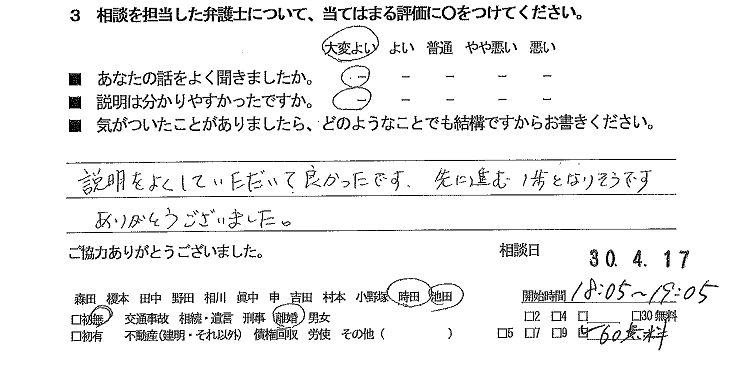 3 相談を担当した弁護士について、当てはまる評価に〇をつけてください。
大変よい よい 普通 やや悪い 悪い
■ あなたの話をよく聞きましたか。 － － － － －
■ 説明は分かりやすかったですか。 － － － － －
■ 気がついたことがありましたら、どのようなことでも結構ですからお書きください。
説明をよくしていただいて良かったです。先に進む1歩となりそうです
ありがとうございました。
ご協力ありがとうございました。 相談日 30.4.17
森田 榎本 田中 野田 相川 眞中 申 吉田 村本 小野塚 時田 池田 開始時間 18:05~19:05
□初無 交通事故 相続・遺言 刑事 離婚 男女 □2 □4 □ □30無料
□初有 不動産(建明・それ以外) 債権回収 労使 その他( ) □5 □7 □9 60無料